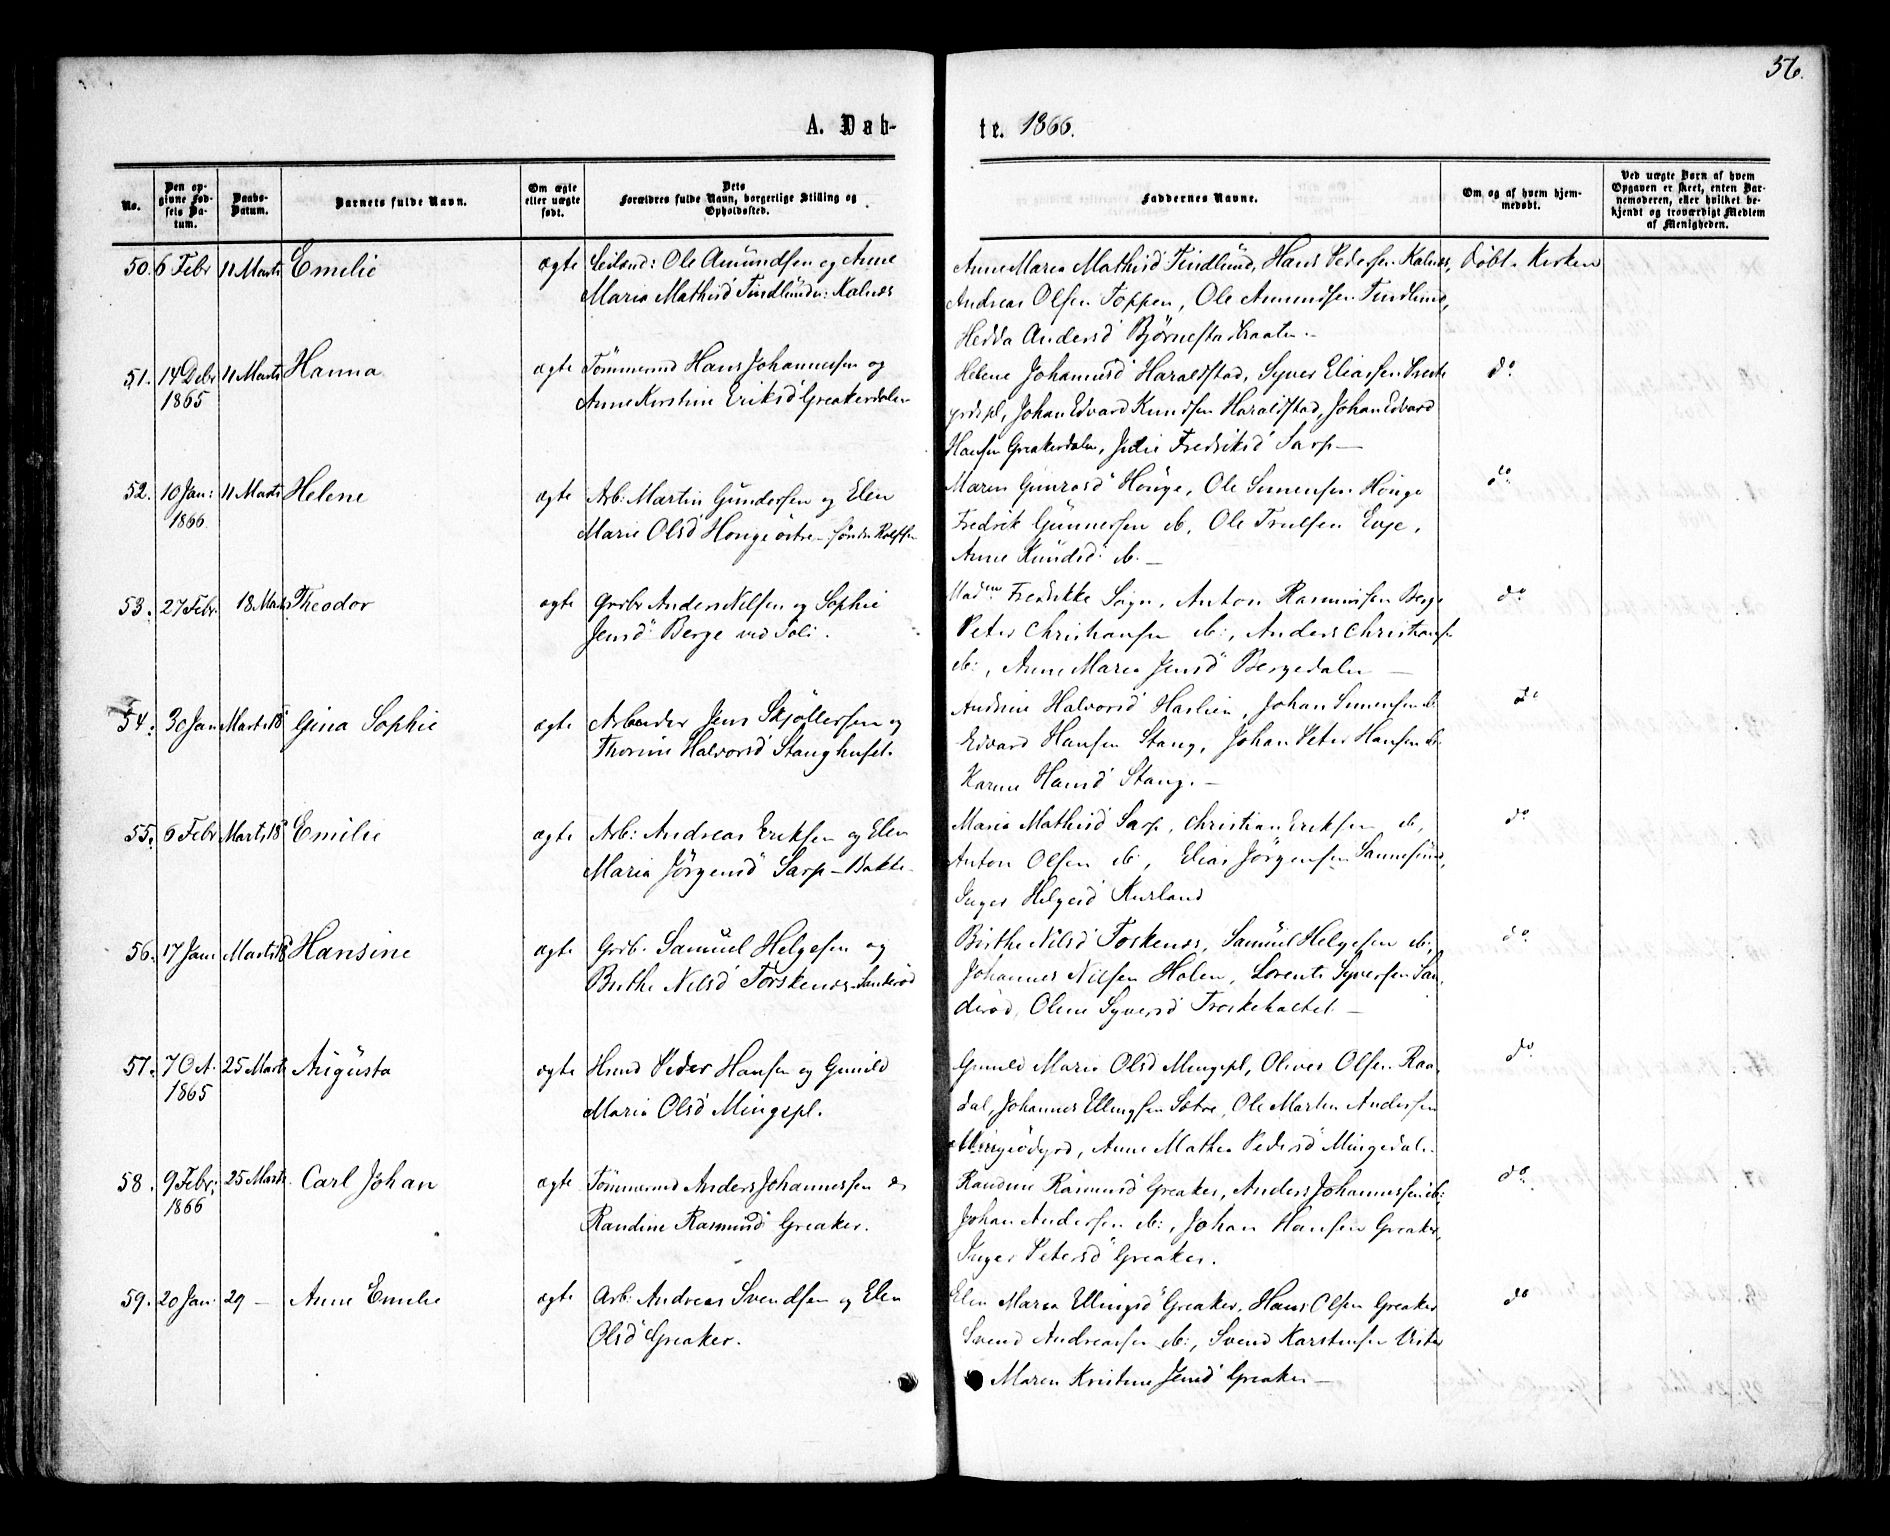 56.
A. Døb-
te. 1866.
No.
Den op-
givne Fød-
sels Da-
tum.
Daabs-
Datum.
Barnets fulde Navn.
Om ægte
eller uægte
født.
Dets
Forældres fulde Navn, borgerlige Stilling og
Opholdssted.
Faddernes Navne.
Om og af hvem hjem-
medøbt.
Ved uægte Børn af hvem
Opgaven er skeet, enten Bar-
nemoderen, eller hvilket be-
kjendt og troværdigt Medlem
af Menigheden.
50. 6 Febr 11 Marts Emilie ægte Ole Amundsen og Anne
Maria Mathisd Kalnæs
Anne Maria Mathisd Tindlund, Hans Pedersen Kalnæs, døbt i Kirken
Andreas Olsen Toppen, Ole Amundsen Tindlund,
Hedda Andersd Bjørnestadbraaten
51. 14 Debr 11 Marts Hanna ægte Tömmermd Hans Johannessen og
1865 Anne Kirstine Eriksd Greakerdalen
Helene Johannesd Haraldstad, Syver Eliassen Preste
grdspl, Johan Edvard Knudsen Haraldstad, Johan Edvard
Hansen Greakerdalen, Fredriksd Sarp —
do
52. 10 Jan: 11 Marts Helene ægte Arb: Martin Gundersen og Elen
1866 Marie Olsd Hönge östre
Maren Hönge, Ole Simensen Hönge
Fredrik Gunnersen ib, Ole Trulsen Evje,
Anne Knudsd ib. —
do
53. 27 Febr. 18 Marts Theodor ægte Grdbr Anders Nilsen og Sophie
Jensd Berge ved Soli.
Madm Fredrikke Anton Rasmussen Berge
Peter Christiansen ib:, Anders Christiansen
ib:, Anne Maria Jensd Bergedalen —
do
54. 30 Jan Marts 18 Gina Sophie ægte Arbeider Jens Skjöllersen og
Thorine Halvorsd Stanghuset.
Andrine Halvorsd Haslien, Johan Simensen ib
Edvard Hansen Stang, Johan Peter Hansen ib.
Karine Hansd Stang. —
do
55. 6 Febr Marts 18 Emilie ægte Arb: Andreas Eriksen og Elen
Maria Jörgensd Sarp — Bakke
Maria Mathisd Sarp, Christian Eriksen ib,
Anton Olsen ib, Elias Jörgensen Sannesund,
Inger Helgesd Kurland
do
56. 17 Jan Marts 18 Hansine ægte Grdb. Samuel Helgesen og
Birthe Nilsd Torskenæs
Birthe Nilsd Toskenæs, Samuel Helgesen ib,
Johannes Nilsen Holen, Lorents Syversen San
deröd, Oline Syversd —
do
57. 7 Ot. 25 Marts Augusta ægte Husmd Peder Hansen og Gunild
1865 Maria Olsd Mingepl.
Gunild Maria Olsd Mingepl, Oliver Olsen Raa
dal, Johannes Ellingsen Sætre, Ole Martin Andersen
Anne Mathea Pedersd Mingedal.
do
58. 9 Febr: 25 Marts Carl Johan ægte Tömmermd Anders Johannessen og
1866 Randine Rasmusd Greaker.
Randine Rasmusd Greaker, Anders Johannessen ib:
Johan Andersen ib:, Johan Hansen Greaker,
Inger Petersd Greaker.
do
59. 20 Jan. 29 — Anne Emilie ægte Arb: Andreas Svendsen og Elen
Olsd Greaker.
Elen Maria Ellingsd Greaker, Hans Olsen Greaker
Svend Andreassen ib:, Svend Karstensen Vister
Maren Kristine Jensd Greaker —
do